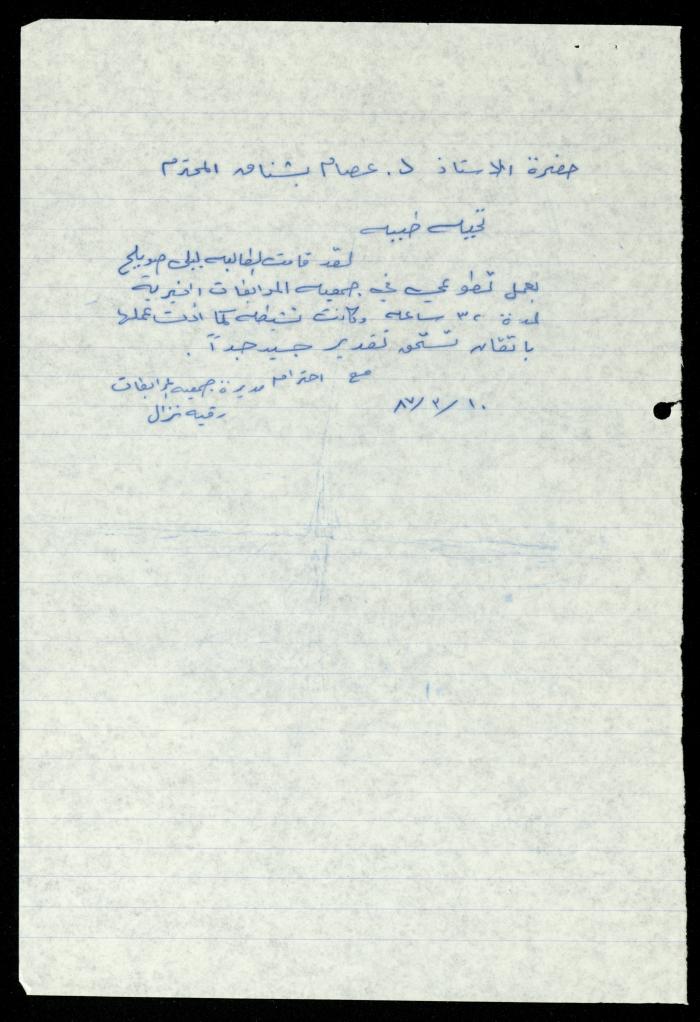 حضرة الاستاذ د. عصام بشناق المحترم
تحيه طيبه
لقد قامت الطالبه ليلى صويلح
بعمل تطوعي في جمعيه المرابطات الخيرية
لمدة ٣٠ ساعه وكانت نشيطه كما ادت عملها
باتقان تستحق تقدير جيد جداً .
مع احترام مديرة جمعيه المرابطات
١٠/٣/٨٧ رقيه نزال